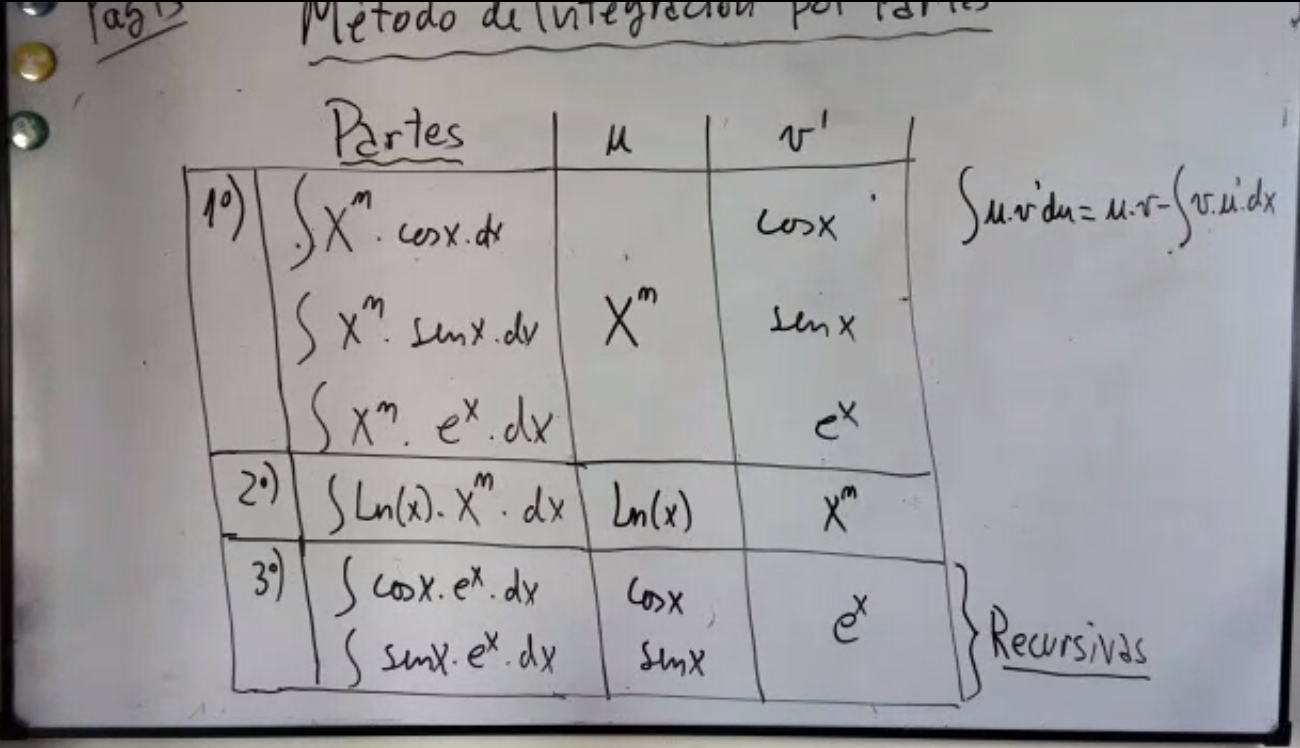 Pag 13
Método de Integración por Partes
Partes | u | v'
1º) ∫ xⁿ. cosx.dx | xⁿ | cosx
∫ xⁿ. senx.dx | senx
∫ xⁿ. eˣ.dx | eˣ
2º) ∫ Ln(x). xⁿ. dx | Ln(x) | xⁿ
3º) ∫ cosx.eˣ.dx | cosx | eˣ
∫ senx.eˣ.dx | senx
Recursivas
∫u.v'du = u.v-∫v.u'.dx